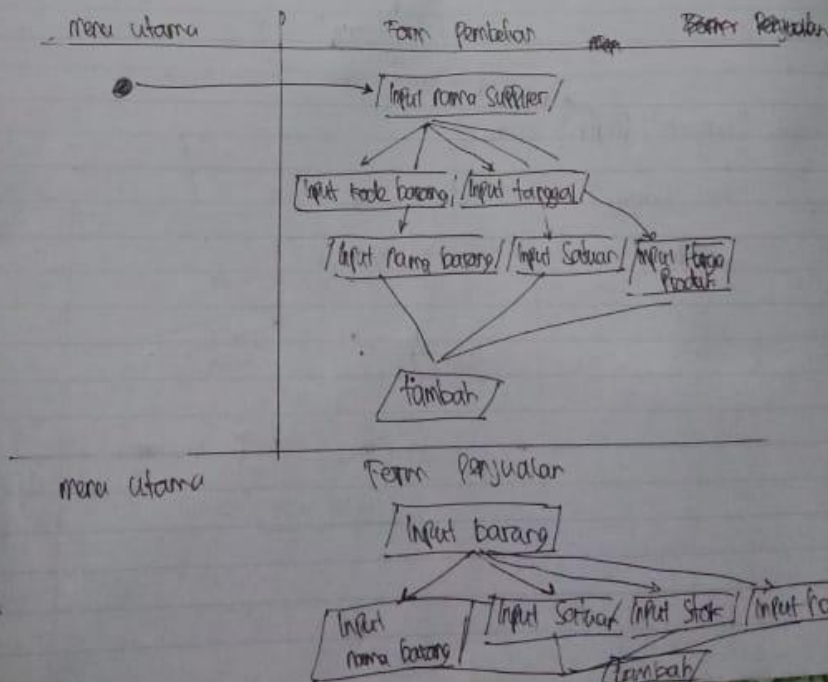 menu utama
Form Pembelian
Penjualan
Input nama Supplier
Input kode barang
Input tanggal
Input nama barang
Input Satuan
Input Harga
Produk
tambah
menu utama
Form Penjualan
Input barang
Input
nama barang
Input Satuan
Input Stok
Input
tambah